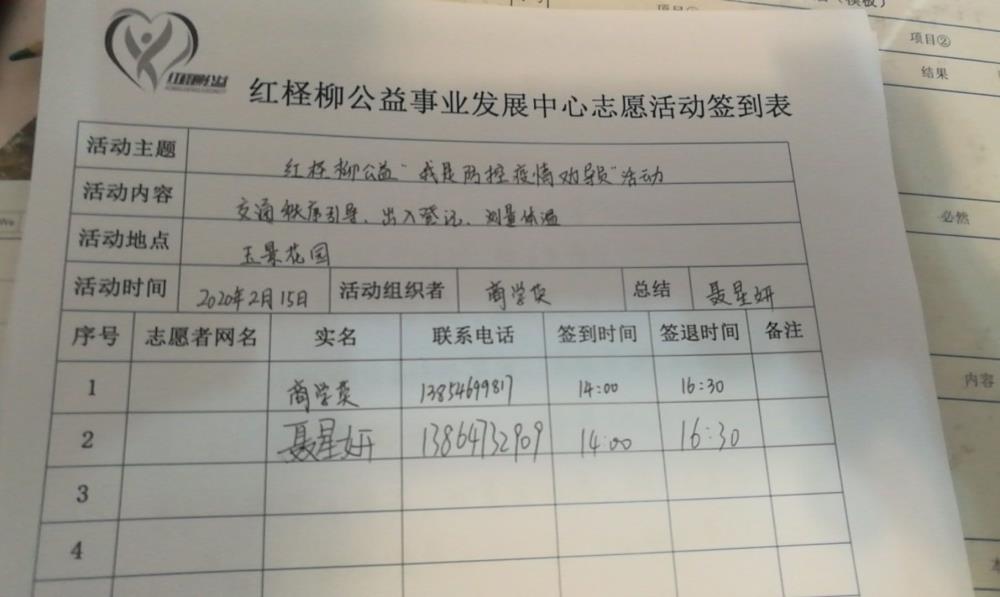 红柽柳公益
红柽柳公益事业发展中心志愿活动签到表
活动主题 红柽柳公益“我是防控疫情劝导员”活动
活动内容 交通秩序引导、出入登记、测量体温
活动地点 玉景花园
活动时间 2020年2月15日 活动组织者 商学英 总结 聂星妍
序号 志愿者网名 实名 联系电话 签到时间 签退时间 备注
1 商学英 13854699817 14:00 16:30
2 聂星妍 13864732909 14:00 16:30
3
4
项目②
结果
必然
内容